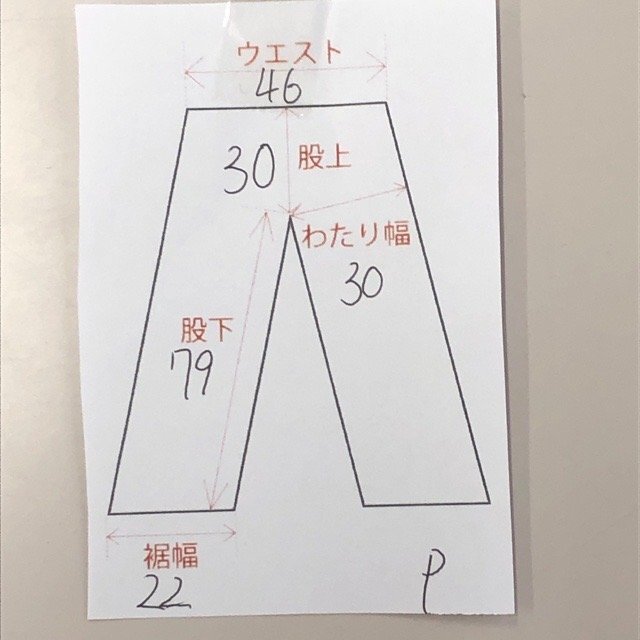 ウエスト
46
30
股上
わたり幅
30
股下
79
裾幅
22
P